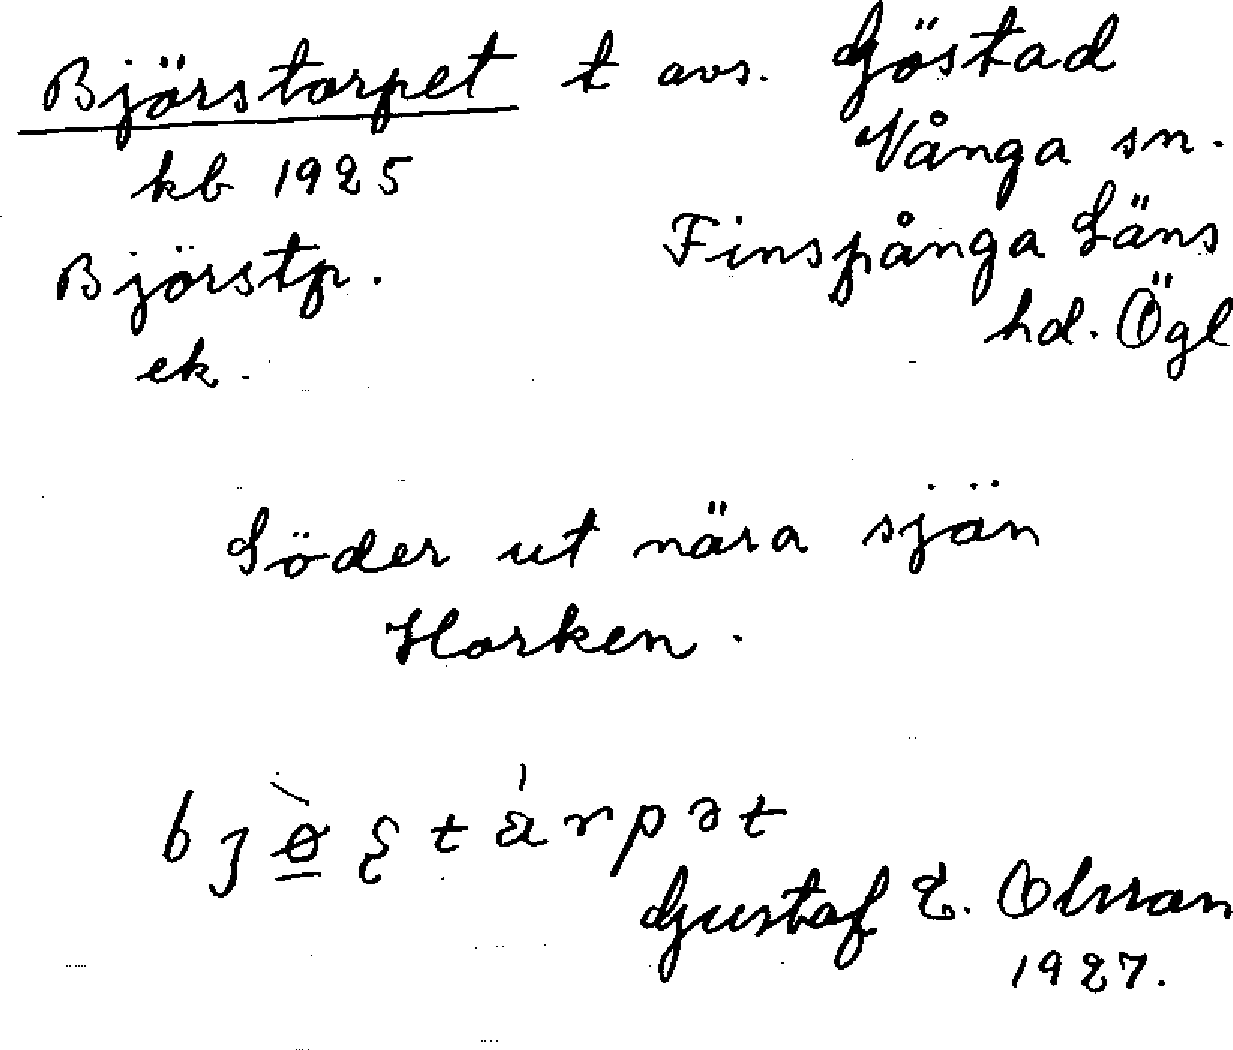 Björstorpet t avs. Göstad
Vånga sn.
kb 1925
Finspånga Läns
Björstp.
hd. Ögl
ek.
Söder ut nära sjön
Horken.
Gustaf E. Olsson
1927.